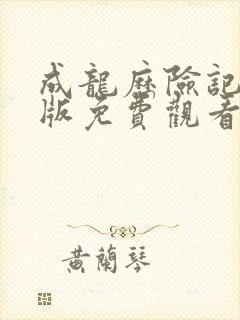 成龍歷險記
版免費觀看
黃蘭琴